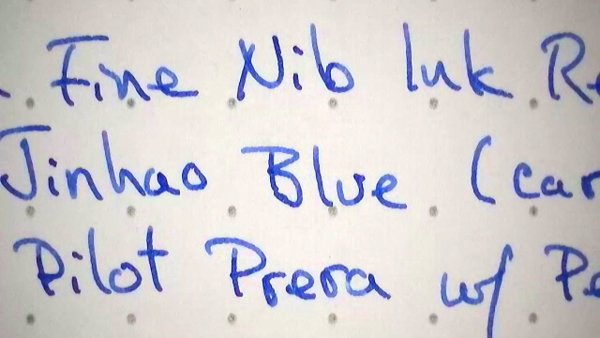 Fine Nib Ink Re
Jinhao Blue (car
Pilot Prera w/ Pe